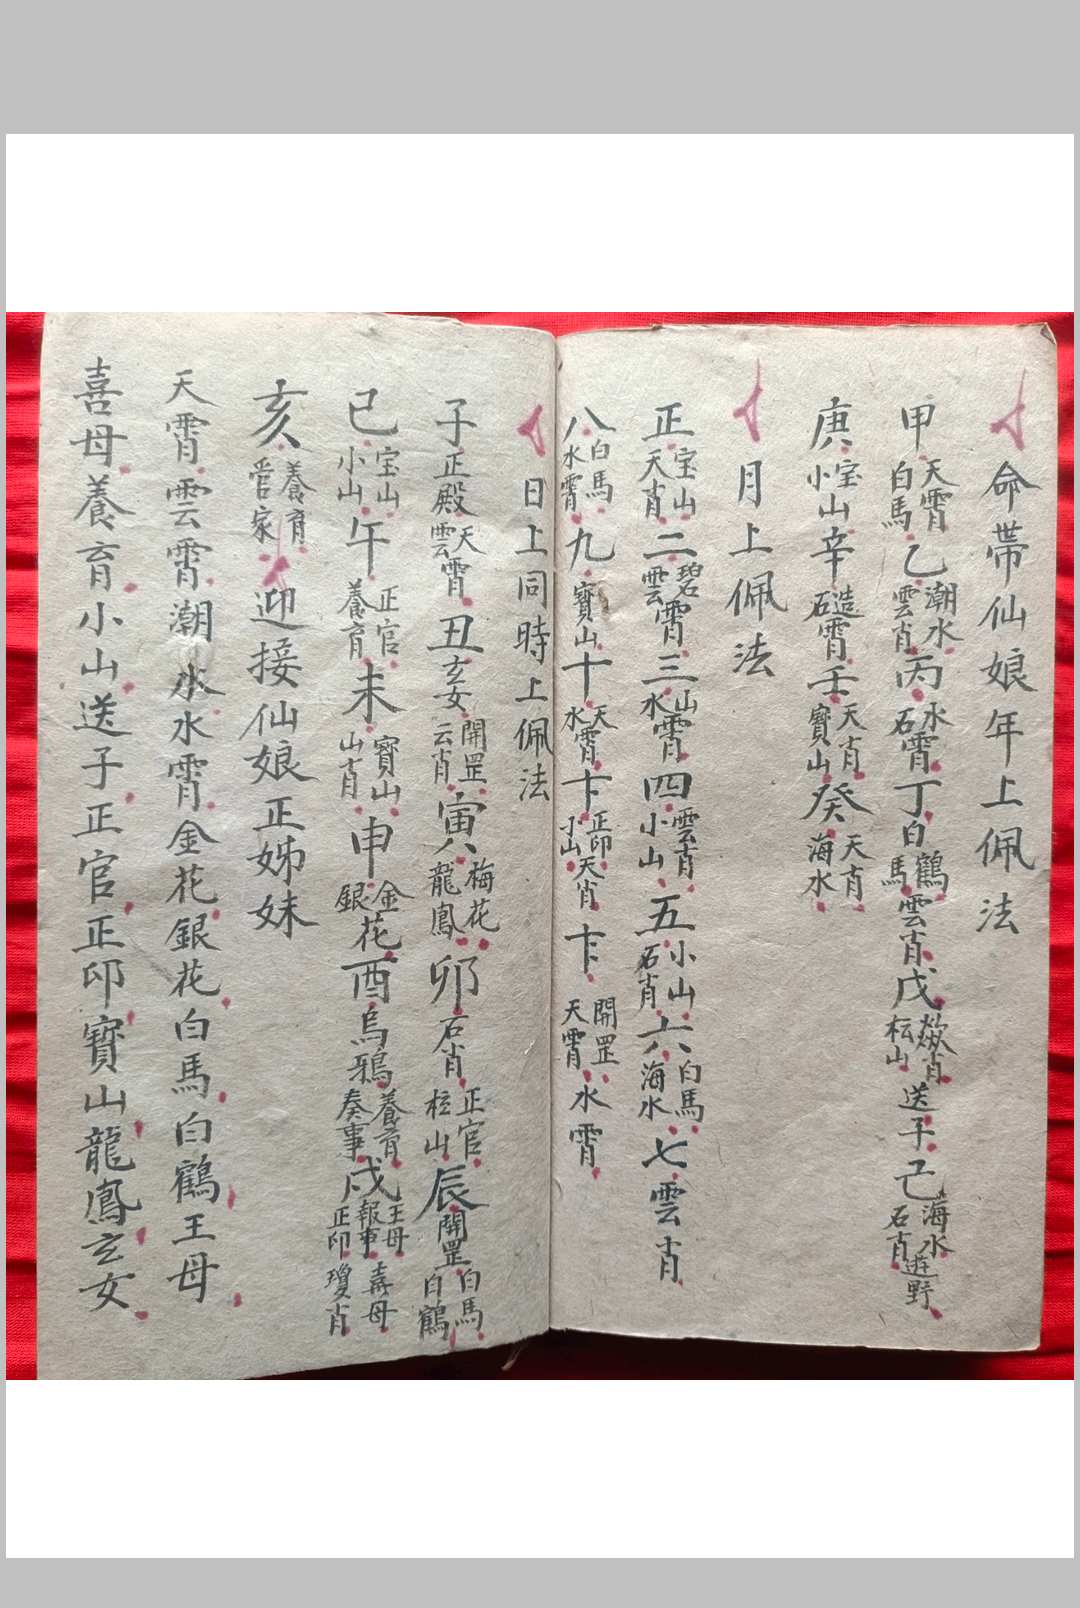 命帶仙娘年上佩法
甲天霄白馬乙潮水雲肖丙水石霄丁白鶴馬雲肖戊肖山送子己海水石肖遊野
庚宝小山辛造石霄壬天肖寶山癸天肖海水
月上佩法
正宝山天肖二碧雲霄三山水霄四雲肖小山五小山石肖六白馬海水七雲肖
八白馬水霄九寶山十天水霄卞正印小山天肖卞開罡天霄水霄
日上同時上佩法
子正殿天雲霄丑玄女開罡云肖寅梅花龍鳳卯石肖正官山辰開罡白馬白鶴
己宝山小山午正官養育未寶山山肖申金銀花酉烏鴉養育奏事戌王母報事正印喜母瓊肖
亥養育管家迎接仙娘正姊妹
天霄雲霄潮水水霄金花銀花白馬白鶴王母
喜母養育小山送子正官正印寶山龍鳳玄女